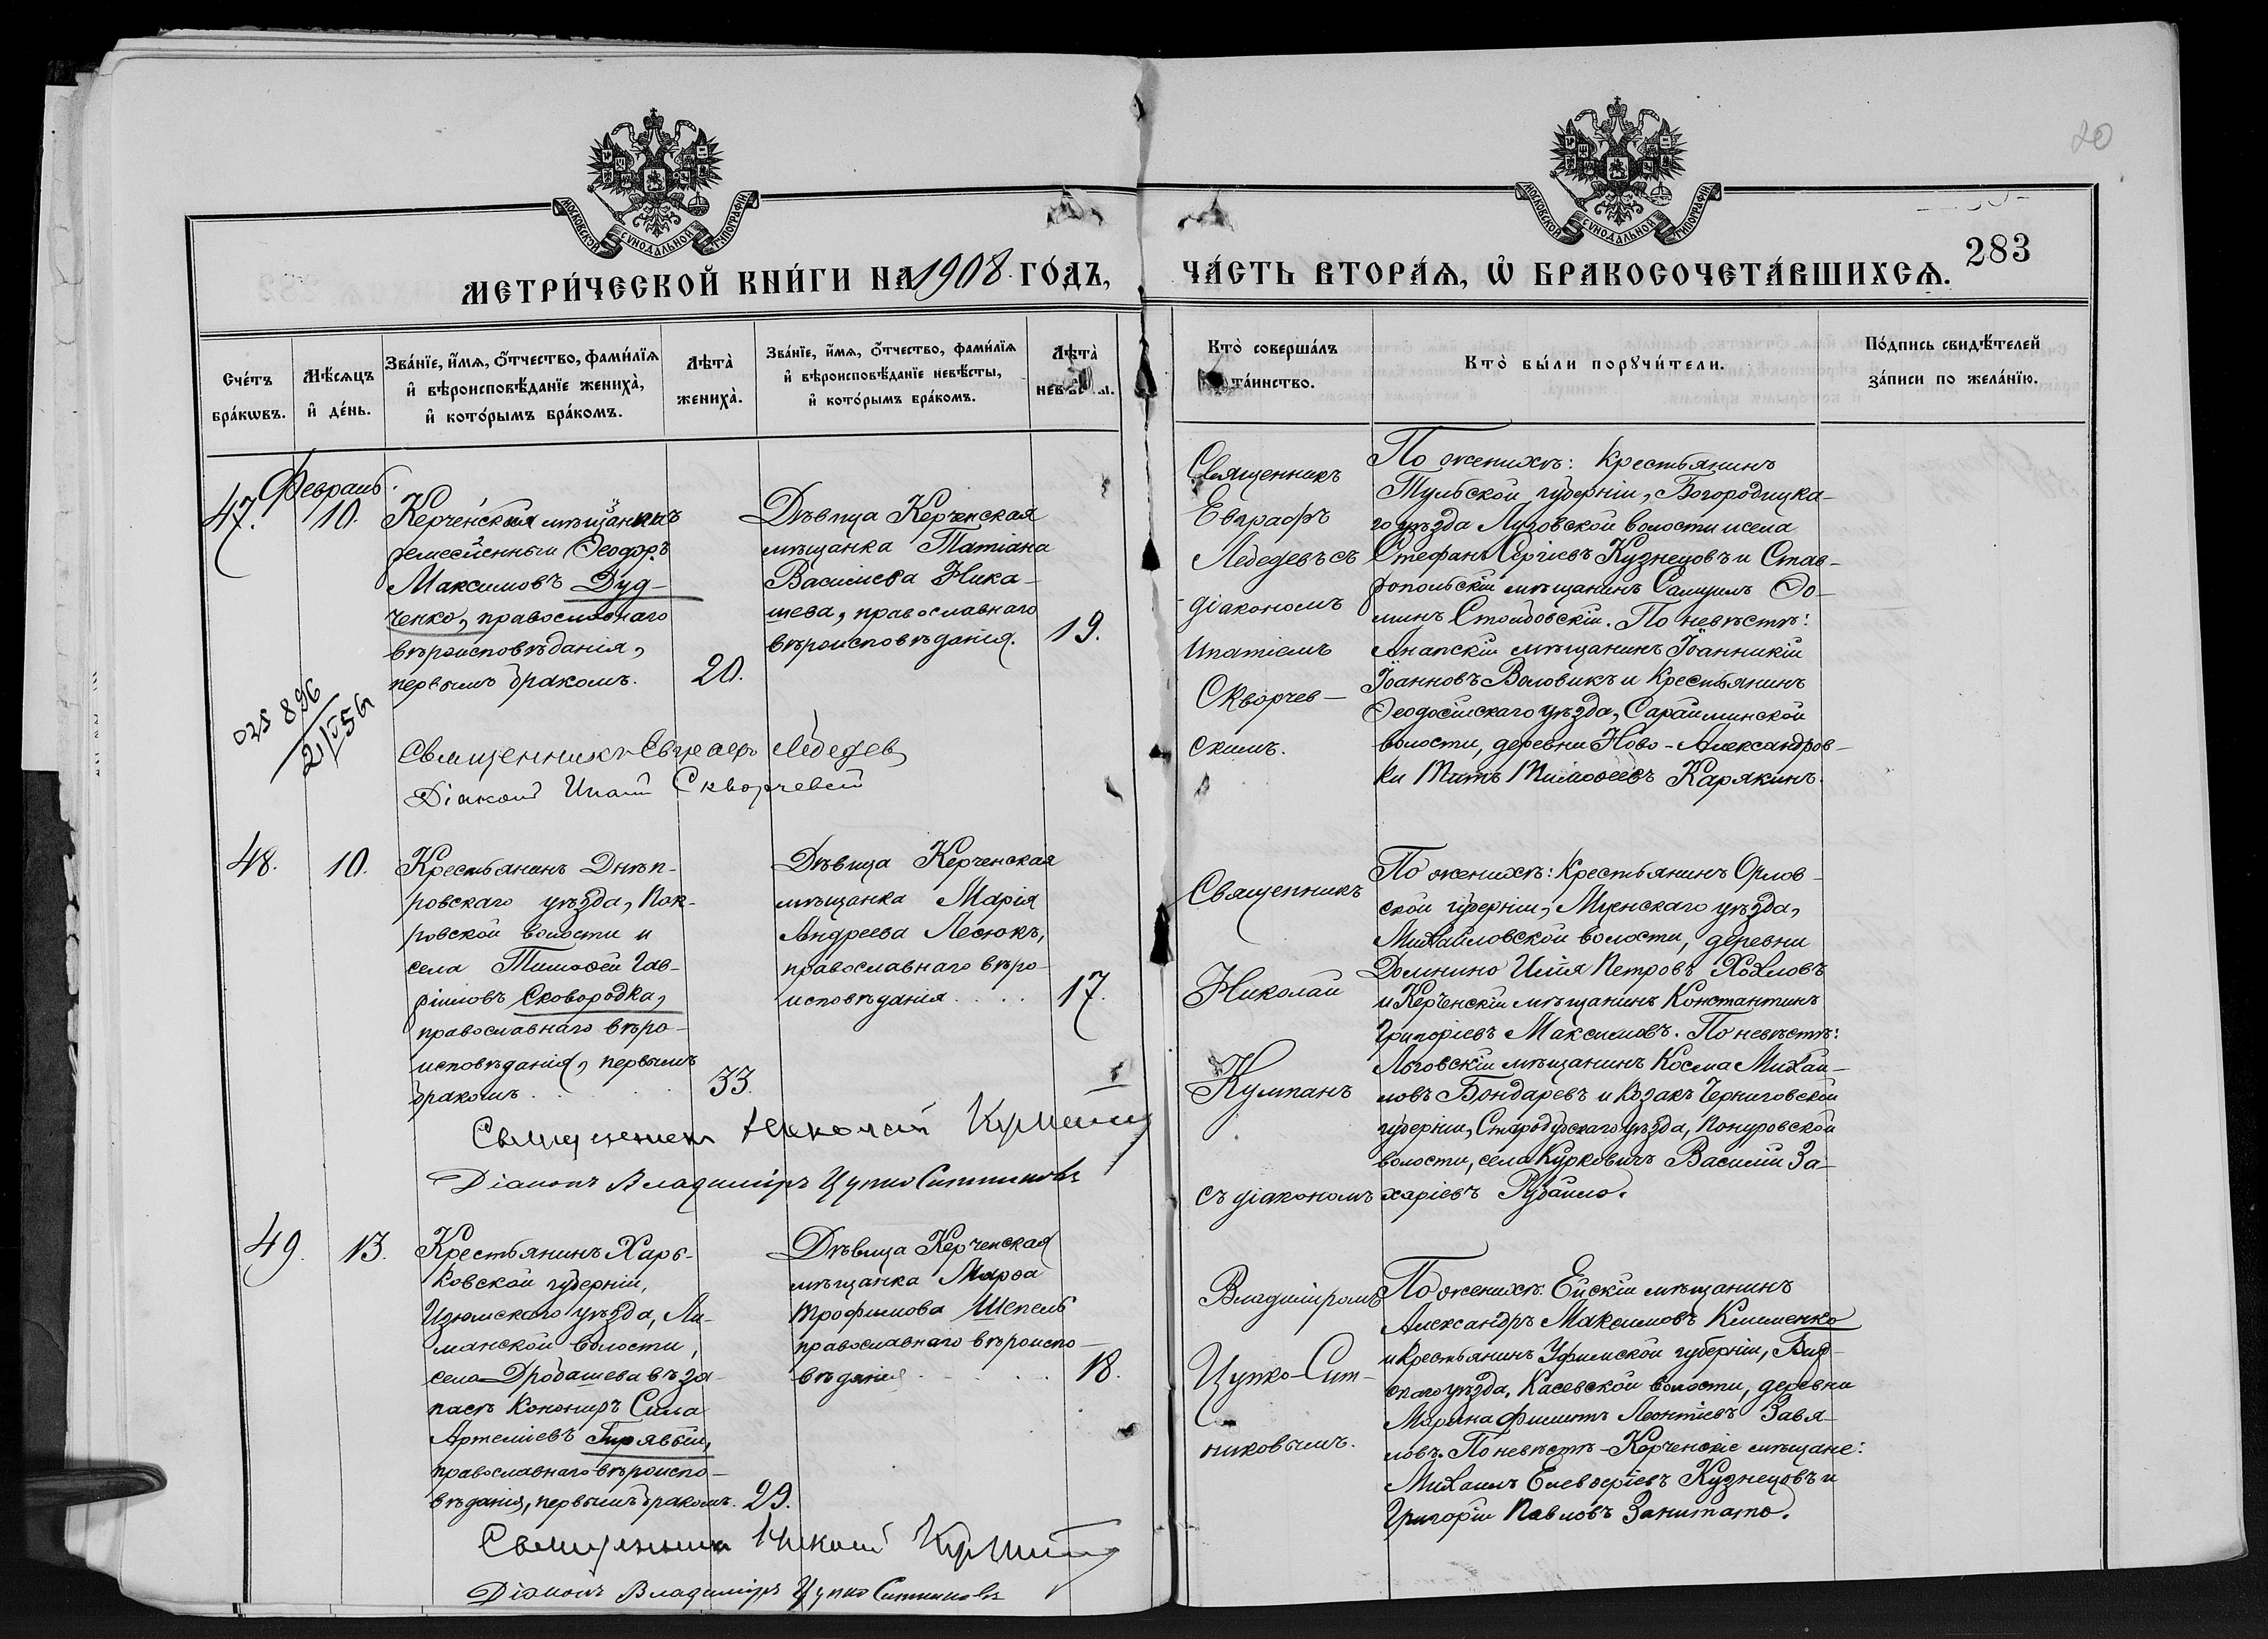 20
МОСКОВСКОЙ СУНОДАЛЬНОЙ ТИПОГРАФІИ
МОСКОВСКОЙ СУНОДАЛЬНОЙ ТИПОГРАФІИ
МЕТРИ́ЧЕСКОЙ КНИ́ГИ НА 1908. ГО́ДЪ,
ЧА́СТЬ ВТОРА́Ѧ, Ѡ҆ БРАКОСОЧЕТА́ВШИХСѦ.
283
Сче́тъ
бра́кѡвъ.
Мѣ́сѧцъ
и҆ де́нь.
Зва́нїе, и҆́мѧ, ѻ҆́тчество, фами́лїѧ
и҆ вѣроисповѣ́данїе жениха̀,
и҆ кото́рымъ бра́комъ.
Лѣта̀
жениха̀.
Зва́нїе, и҆́мѧ, ѻ҆́тчество, фами́лїѧ
и҆ вѣроисповѣ́данїе невѣ́сты,
и҆ кото́рымъ бра́комъ.
Лѣта̀
Кто̀ соверша́лъ
та́инство.
Кто̀ бы́ли порꙋчи́тели.
По́дпись свидѣ́телей
за́писи по жела́нїю.
Февраль.
47.
10.
Керченскій мѣщанинъ
ремесленный Ѳеодоръ
Максимовъ Дуд-
ченко, православнаго
вѣроисповѣданія,
первымъ бракомъ.
20.
Дѣвица Керченская
мѣщанка Татіана
Василіева Ника-
шева, православнаго
вѣроисповѣданія.
19.
Священникъ
Евграфъ
Лебедевъ съ
діакономъ
Ипатіемъ
Скворчев-
скимъ.
По женихѣ: Крестьянинъ
Тульской губерніи, Богородицка-
го уѣзда Луговской волости и села
Стефанъ Сергіевъ Кузнецовъ и Став-
ропольскій мѣщанинъ Самуилъ Ѳо-
минъ Столбовскій. По невѣстѣ:
Анапскій мѣщанинъ Іоанникій
Іоанновъ Воловикъ и Крестьянинъ
Ѳеодосійскаго уѣзда, Сарайминской
волости, деревни Ново-Александров-
ки Титъ Тимоѳеевъ Карякинъ.
025 896
Священникъ Евграфъ Лебедев
Діаконъ Ипатій Скворчевскій
48.
10.
Крестьянинъ Днѣп-
ровскаго уѣзда, Пок-
ровской волости и
села Тимоѳей Гав-
ріиловъ Сковородка,
православнаго вѣро-
исповѣданія, первымъ
бракомъ.
33.
Дѣвица Керченская
мѣщанка Марія
Андреева Лесюкъ,
православнаго вѣро-
исповѣданія....
17.
Священникъ
Николай
Кумпанъ
съ діакономъ
Владиміромъ
Цупко-Сит-
никовымъ.
По женихѣ: Крестьянинъ Орлов-
ской губерніи, Мценскаго уѣзда,
Михайловской волости, деревни
Домнино Илія Петровъ Хохловъ
и Керченскій мѣщанинъ Константинъ
Григоріевъ Максимовъ. По невѣстѣ:
Льговскій мѣщанинъ Косма Михаи-
ловъ Бондаревъ и козакъ Черниговской
губерніи, Стародубскаго уѣзда, Понуровской
волости, села Курковичъ Василій За-
харіевъ Рубайло.
Священникъ Николай Кумпанъ
Діаконъ Владиміръ Цупко Ситниковъ
49.
13.
Крестьянинъ Харь-
ковской губерніи,
Изюмскаго уѣзда, Ли-
манской волости,
села Дробашева въ за-
пасѣ Кононирѣ Сила
Артеміевъ Гирявый,
православнаго вѣроиспо-
вѣданія, первымъ бракомъ.
29.
Дѣвица Керченская
мѣщанка Марѳа
Трофимова Шепель
православнаго вѣроиспо-
вѣданія
18.
По женихѣ: Ейскій мѣщанинъ
Александръ Максимовъ Клименко
и Крестьянинъ Уфимской губерніи, Бир-
скаго уѣзда, Касевской волости, деревни
Марина Филиппъ Леонтіевъ Завя-
ловъ. По невѣстѣ - Керченскіе мѣщане:
Михаилъ Елевѳеріевъ Кузнецовъ и
Григорій Павловъ Занитато.
Священникъ Николай Кумпанъ
Діаконъ Владиміръ Цупко Ситниковъ